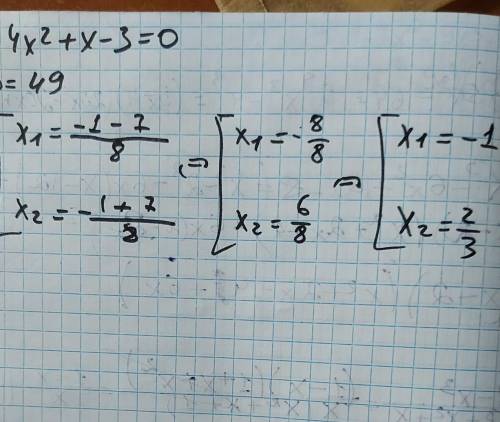 4x² + x - 3 = 0
= 49
x₁ = (-1 - 7)/8 ⇒ x₁ = -8/8 ⇒ x₁ = -1
x₂ = -(1 + 7)/8 x₂ = 6/8 x₂ = 2/3